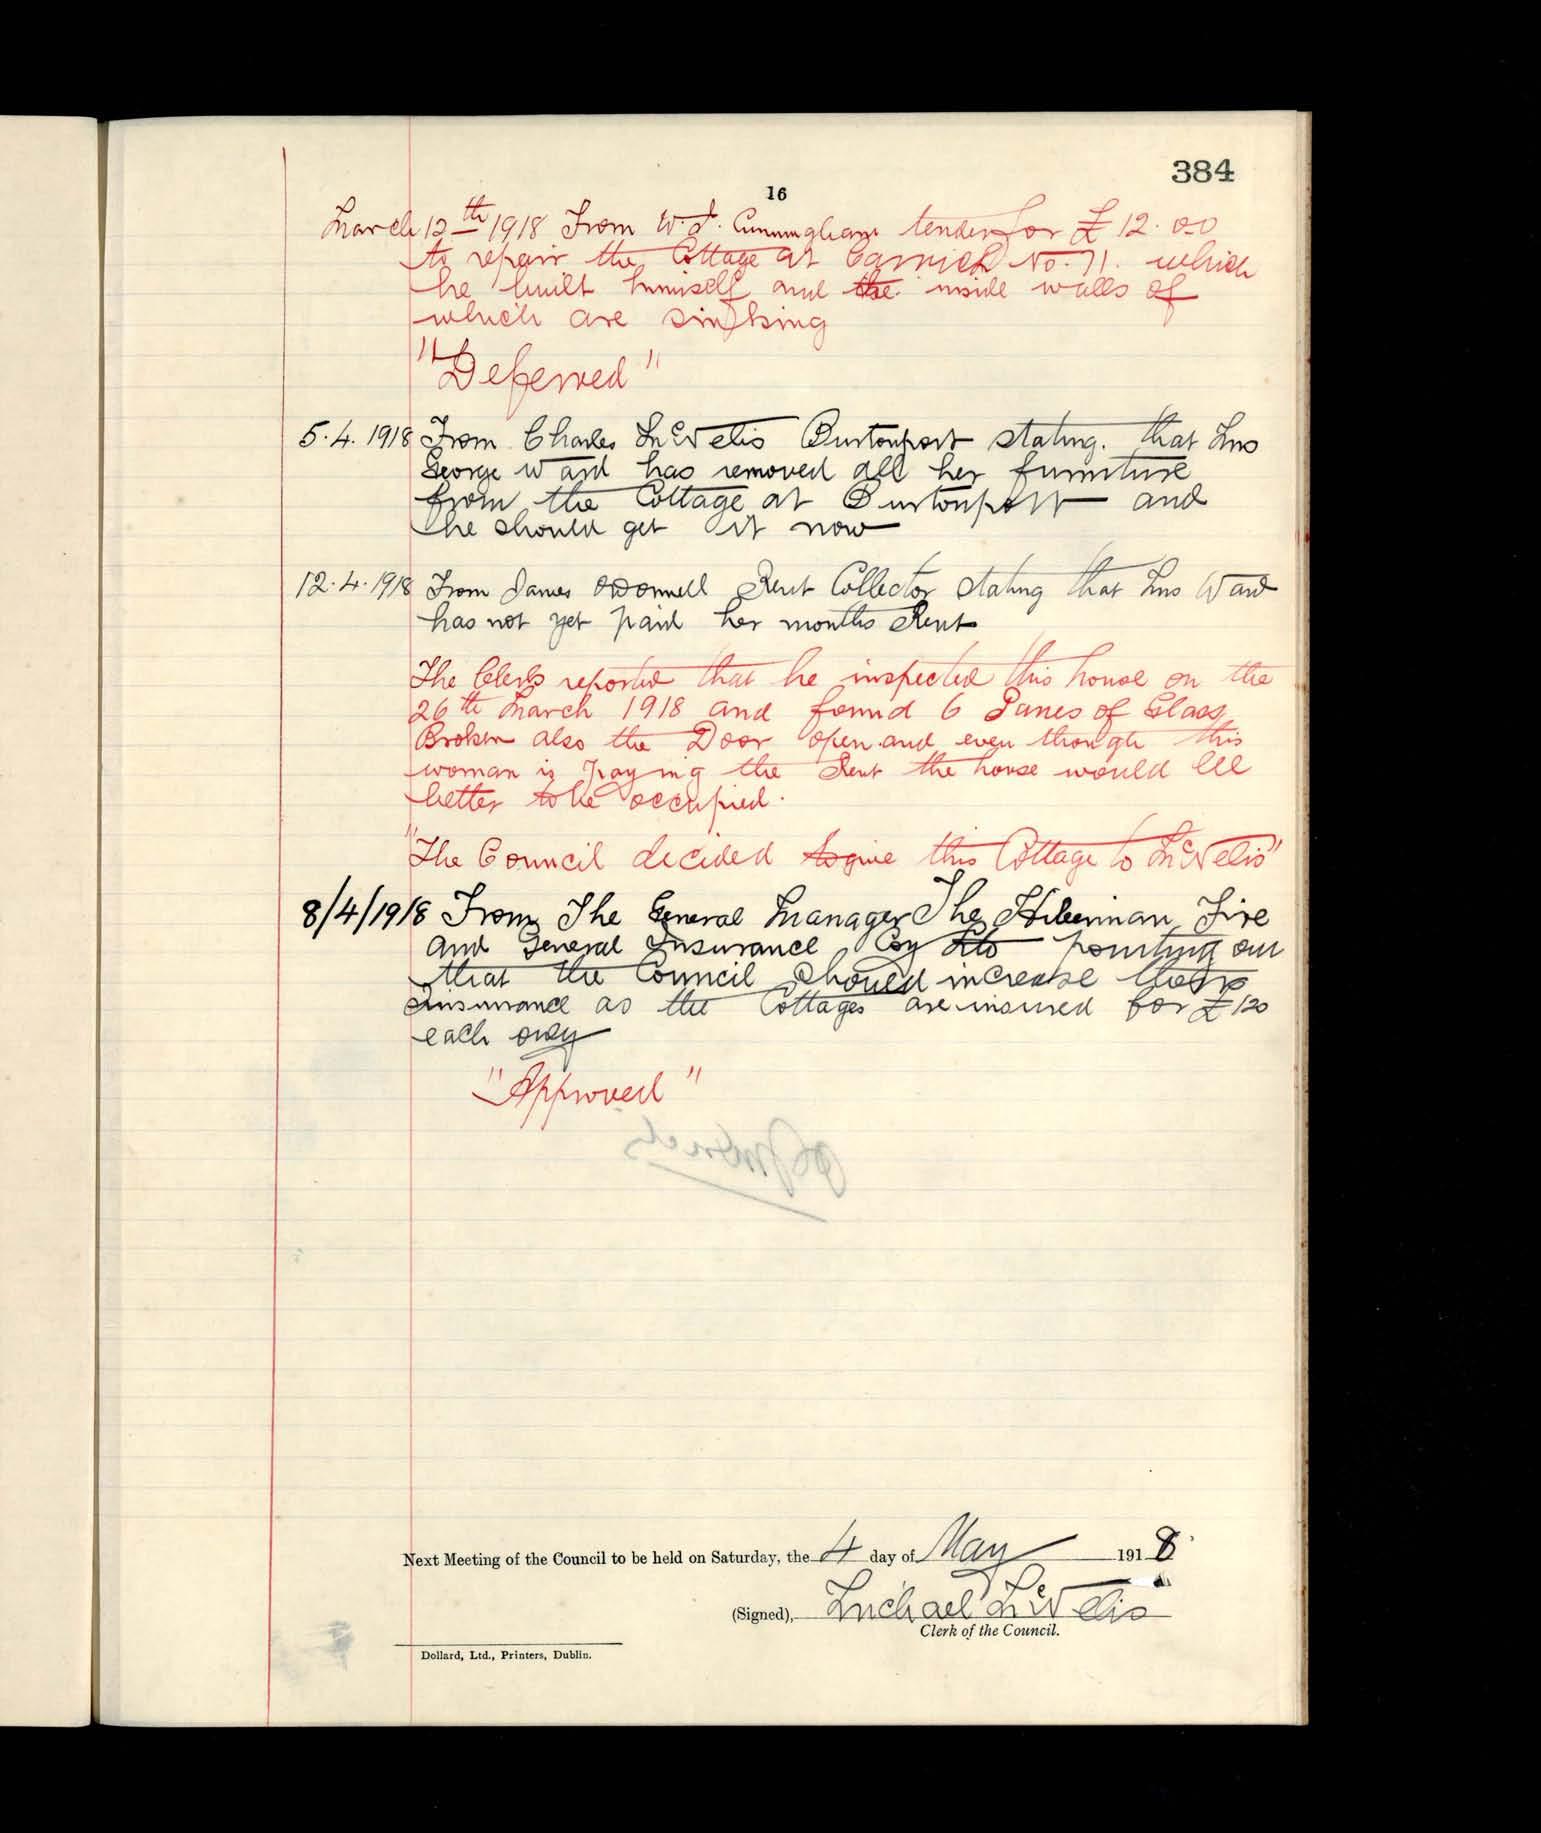 384
16
March 12th 1918 From W. J. Cunningham tender for £12.0.0
to repair the Cottage at Carrick No. 71. which
he built himself and the inside walls of
which are sinking
"Deferred"
5.4.1918 From Charles McVelis Burtonport stating. that Mrs
George Ward has removed all her furniture
from the Cottage at Burtonport and
he should get it now
12.4.1918 From James O'Donnell Rent Collector stating that Mrs Ward
has not yet paid her months Rent
The Clerk reported that he inspected this house on the
26th March 1918 and found 6 Panes of Glass
Broken also the Door open and even though this
woman is paying the Rent the house would be
better to be occupied.
"The Council decided to give this Cottage to McVelis"
8/4/1918 From The General Manager The Hibernian Fire
and General Insurance Coy Ltd pointing out
that the Council should increase their
Insurance as the Cottages are insured for £120
each only
"Approved"
Next Meeting of the Council to be held on Saturday, the 4 day of May 1918
(Signed), Michael McVelis
Clerk of the Council.
Dollard, Ltd., Printers, Dublin.